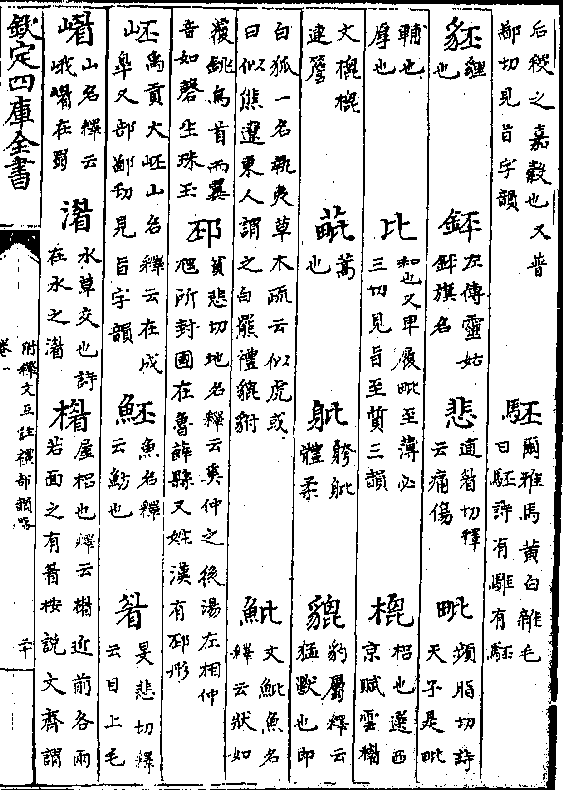 后稷之嘉穀也又普鄙切見旨字韻 駓爾雅馬黄白雜毛曰駓詩有騅有駓
豾貍也 鉟左傳靈姑鉟旗名 悲逋眉切釋云痛傷 毗頻脂切詩天子是毗
輔也厚也 比和也又卑履毗至薄必三切見旨至質三韻 㮰梠也選西京賦雲㮰
文㮰㮰連簷 蒿也 體柔 貔豹屬釋云猛獸也即
白狐一名執夷草木疏云似虎或曰似熊遼東人謂之白羆禮貔貅 魮文魮魚名釋云狀如
覆銚鳥首而翼音如磬生珠玉 邳貧悲切地名釋云奚仲之後湯左相仲虺所封國在魯薛縣又姓漢有邳彤
岯禹貢大岯山名釋云在成皋又部鄙切見旨字韻 魾魚名釋云魴也 眉旻悲切釋云目上毛
嵋山名釋云峨嵋在蜀 湄水草交也詩在水之湄 楣屋梠也釋云楣近前各兩若面之有眉按說文齊謂
欽定四庫全書
附釋文互註禮部韻略
卷一
二十